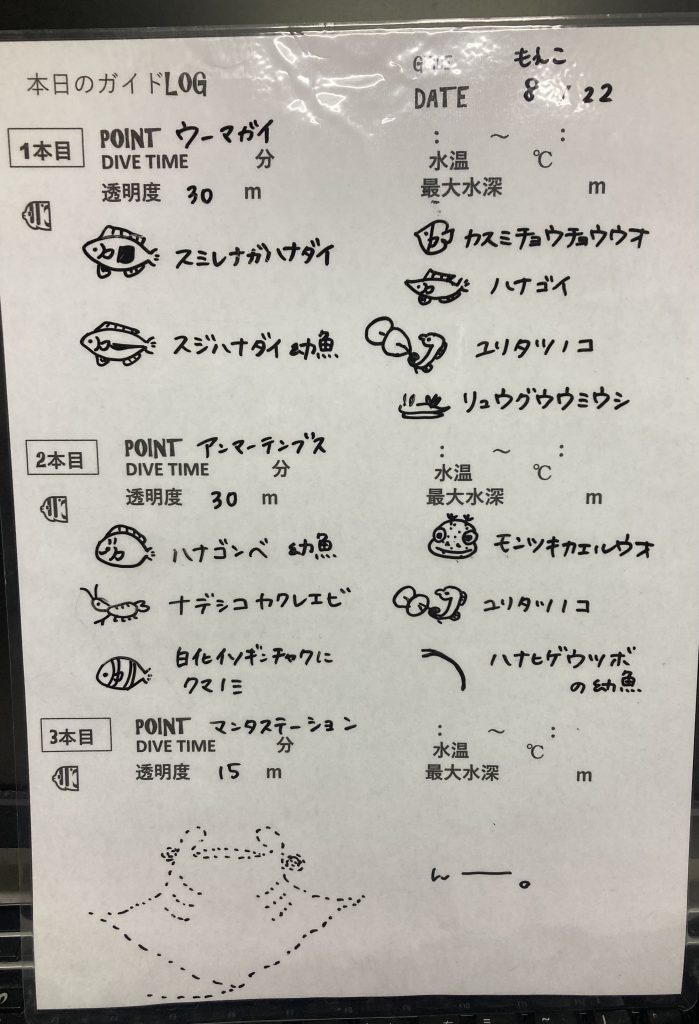 本日のガイドLOG
もんこ
DATE 8 / 22
1本目
POINT ウーマガイ
DIVE TIME 分
透明度 30 m
: ～ :
水温 ℃
最大水深 m
スミレナガハナダイ
スジハナダイ 幼魚
カスミチョウチョウウオ
ハナゴイ
ユリタツノコ
リュウグウウミウシ
2本目
POINT アンマーテンブス
DIVE TIME 分
透明度 30 m
: ～ :
水温 ℃
最大水深 m
ハナゴンベ 幼魚
ナデシコカクレエビ
白化イソギンチャクに
クマノミ
モンツキカエルウオ
ユリタツノコ
ハナヒゲウツボ
の幼魚
3本目
POINT マンタステーション
DIVE TIME 分
透明度 15 m
: ～ :
水温 ℃
最大水深 m
んー。